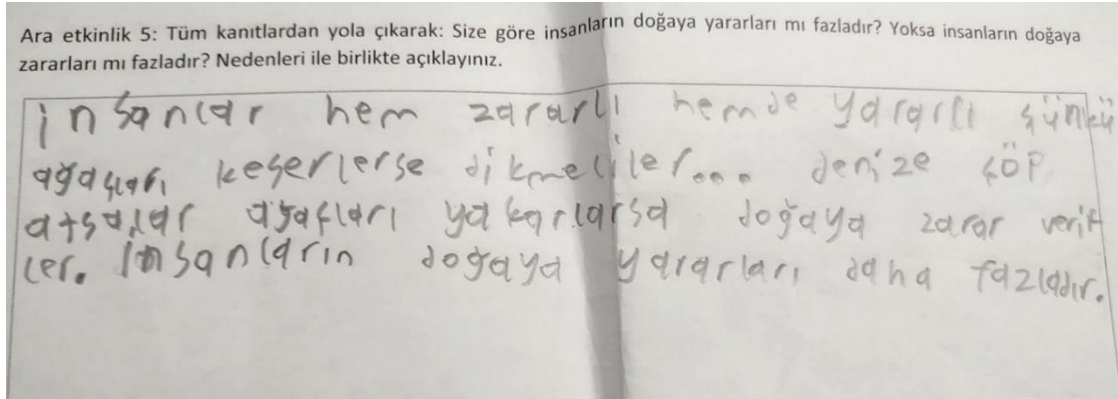 Ara etkinlik 5: Tüm kanıtlardan yola çıkarak: Size göre insanların doğaya yararları mı fazladır? Yoksa insanların doğaya
zararları mı fazladır? Nedenleri ile birlikte açıklayınız.
insanlar hem zararlı hemde yararlı çünkü
ağaçları keserlerse dikmeliler... denize çöp
atsalar ağaçları yakarlarsa doğaya zarar verir
ler. İnsanların doğaya yararları daha fazladır.